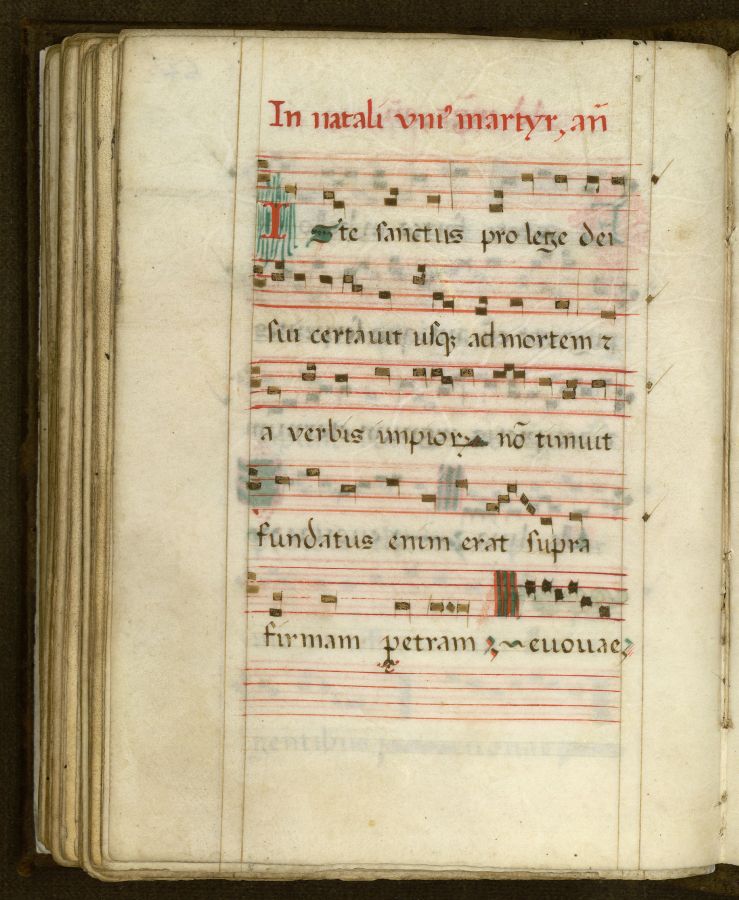 In natali vni9 martyr, añ
ISte sanctus pro lege dei
sui certauit usqꝫ ad mortem ⁊
a verbis impioꝝ nõ timuit
fundatus enim erat supra
firmam petram euouae